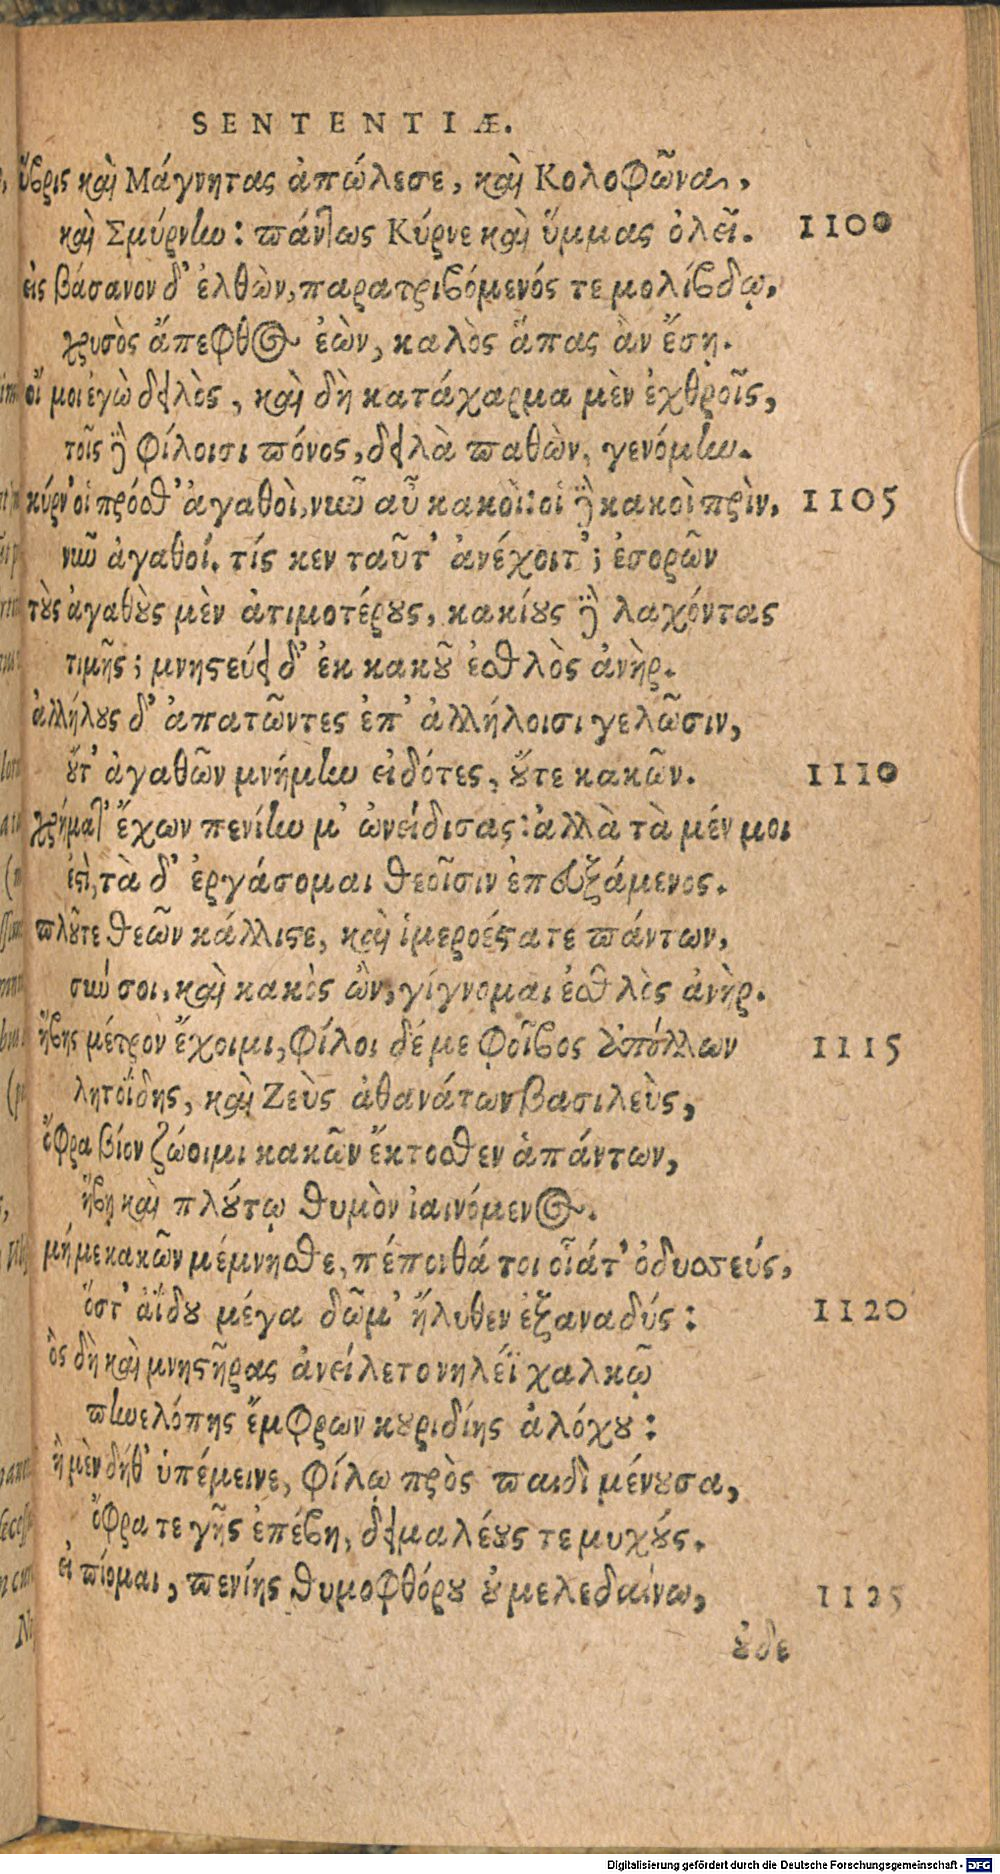 SENTENTIÆ.
ὕβρις καὶ Μάγνητας ἀπώλεσε, καὶ Κολοφῶνα,
καὶ Σμύρνην: πάντως Κύρνε καὶ ὕμμας ὀλεῖ. 1100
εἰς βάσανον δ' ἐλθὼν, παρατριβόμενός τε μολίβδῳ,
χρυσὸς ἄπεφθος ἐὼν, καλὸς ἅπας ἂν ἔσῃ.
οἴ μοι ἐγὼ δειλὸς, καὶ δὴ κατάχαρμα μὲν ἐχθροῖς,
τοῖς δὲ φίλοισι πόνος, δειλὰ παθὼν, γενόμην.
κύρν' οἱ πρόσθ' ἀγαθοὶ, νῦν αὖ κακοί: οἱ δὲ κακοὶ πρὶν, 1105
νῦν ἀγαθοί. τίς κεν ταῦτ' ἀνέχοιτ'; ἐσορῶν
τοὺς ἀγαθοὺς μὲν ἀτιμοτέρους, κακίους δὲ λαχόντας
τιμῆς; μνηστεύει δ' ἐκ κακοῦ ἐσθλὸς ἀνὴρ.
ἀλλήλους δ' ἀπατῶντες ἐπ' ἀλλήλοισι γελῶσιν,
οὔτ' ἀγαθῶν μνήμην εἰδότες, οὔτε κακῶν. 1110
χρήματ' ἔχων πενίην μ' ὠνείδισας: ἀλλὰ τὰ μέν μοι
ἐστὶ, τὰ δ' ἐργάσομαι θεοῖσιν ἐπευξάμενος.
πλοῦτε θεῶν κάλλιστε, καὶ ἱμεροέστατε πάντων,
σὺν σοι, καὶ κακὸς ὢν, γίγνομαι ἐσθλὸς ἀνὴρ.
ἥβης μέτρον ἔχοιμι, φίλοι δέ με φοῖβος ἀπόλλων 1115
λητοΐδης, καὶ Ζεὺς ἀθανάτων βασιλεὺς,
ὄφρα βίον ζώοιμι κακῶν ἔκτοσθεν ἁπάντων,
ἥβῃ καὶ πλούτῳ θυμὸν ἰαινόμενος.
μή με κακῶν μέμνησθε, πέποιθά τοι οἷάτ' ὀδυσσεύς,
ὅστ' ἀΐδου μέγα δῶμ' ἤλυθεν ἐξαναδύς: 1120
ὃς δὴ καὶ μνηστῆρας ἀνείλετο νηλέϊ χαλκῷ
πηνελόπης ἔμφρων κουριδίης ἀλόχου:
ἣ μὲν δήθ' ὑπέμεινε, φίλῳ πρὸς παιδὶ μένουσα,
ὄφρα τε γῆς ἐπέβη, δειμαλέους τε μυχούς.
εἰ πίομαι, πενίης θυμοφθόρου οὐ μελεδαίνω, 1125
οὐδε
Digitalisierung gefördert durch die Deutsche Forschungsgemeinschaft - DFG